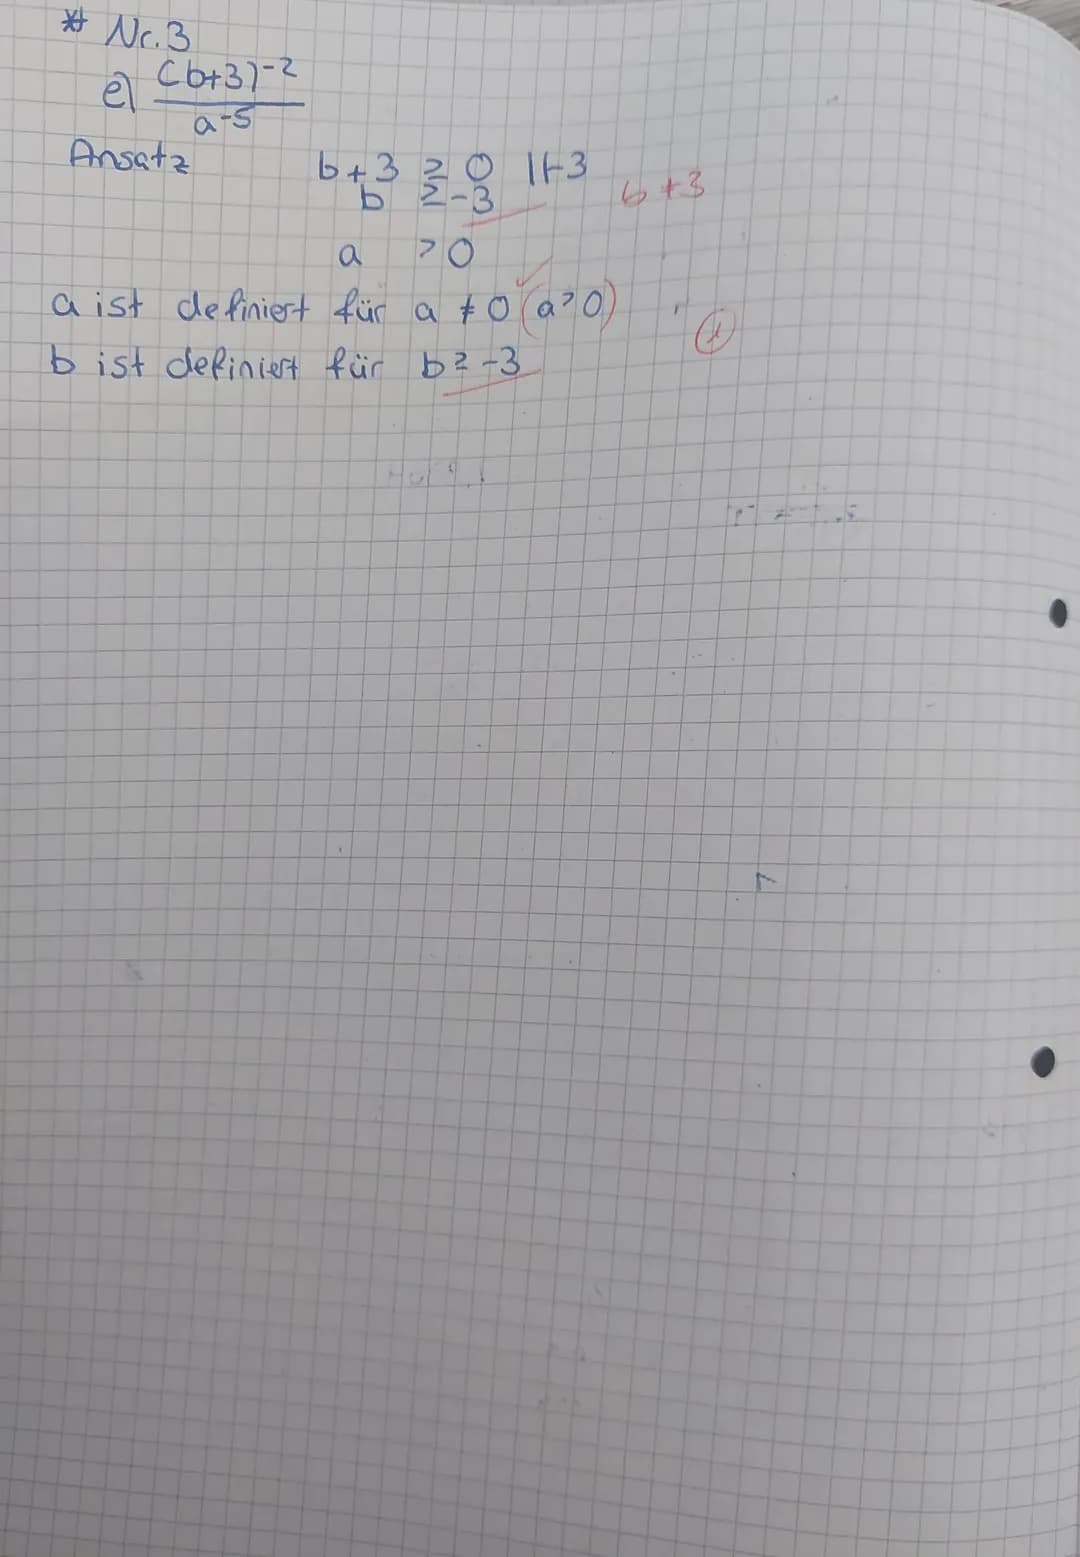 * Nr. 3
e) (b+3)^-2 / a^-5
Ansatz b+3 ≥ 0 |-3
b ≥ -3 b + 3
a > 0
a ist definiert für a ≠ 0 (a > 0)
b ist definiert für b ≥ -3